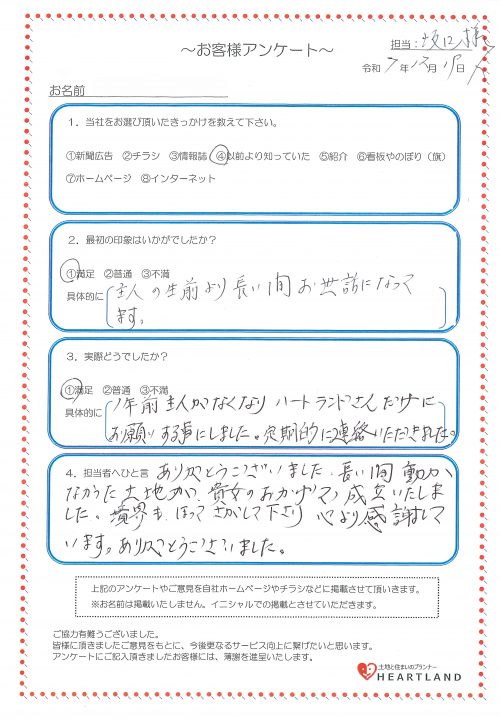 担当：坂口様
～お客様アンケート～
令和7年12月 日
お名前
1．当社をお選び頂いたきっかけを教えて下さい。
①新聞広告 ②チラシ ③情報誌 ④以前より知っていた ⑤紹介 ⑥看板やのぼり（旗）
⑦ホームページ ⑧インターネット
2．最初の印象はいかがでしたか？
①満足 ②普通 ③不満
具体的に 主人の生前より長い間お世話になって
ます。
3．実際どうでしたか？
①満足 ②普通 ③不満
1年前主人がなくなりハートランドさんだけに
具体的に
お願いする事にしました。定期的に連絡いただきました。
4．担当者へひと言 ありがとうございました。長い間動か
なかった土地が、貴女のおかげで成立いたしま
した。境界も、ほってさがして下さり心より感謝して
います。ありがとうございました。
上記のアンケートやご意見を自社ホームページやチラシなどに掲載させて頂いきます。
※お名前は掲載いたしません。イニシャルでの掲載とさせていただきます。
ご協力有難うございました。
皆様に頂きましたご意見をもとに、今後更なるサービス向上に繋げたいと思います。
アンケートにご記入頂きましたお客様には、薄謝を進呈いたします。
土地と住まいのプランナー
HEARTLAND